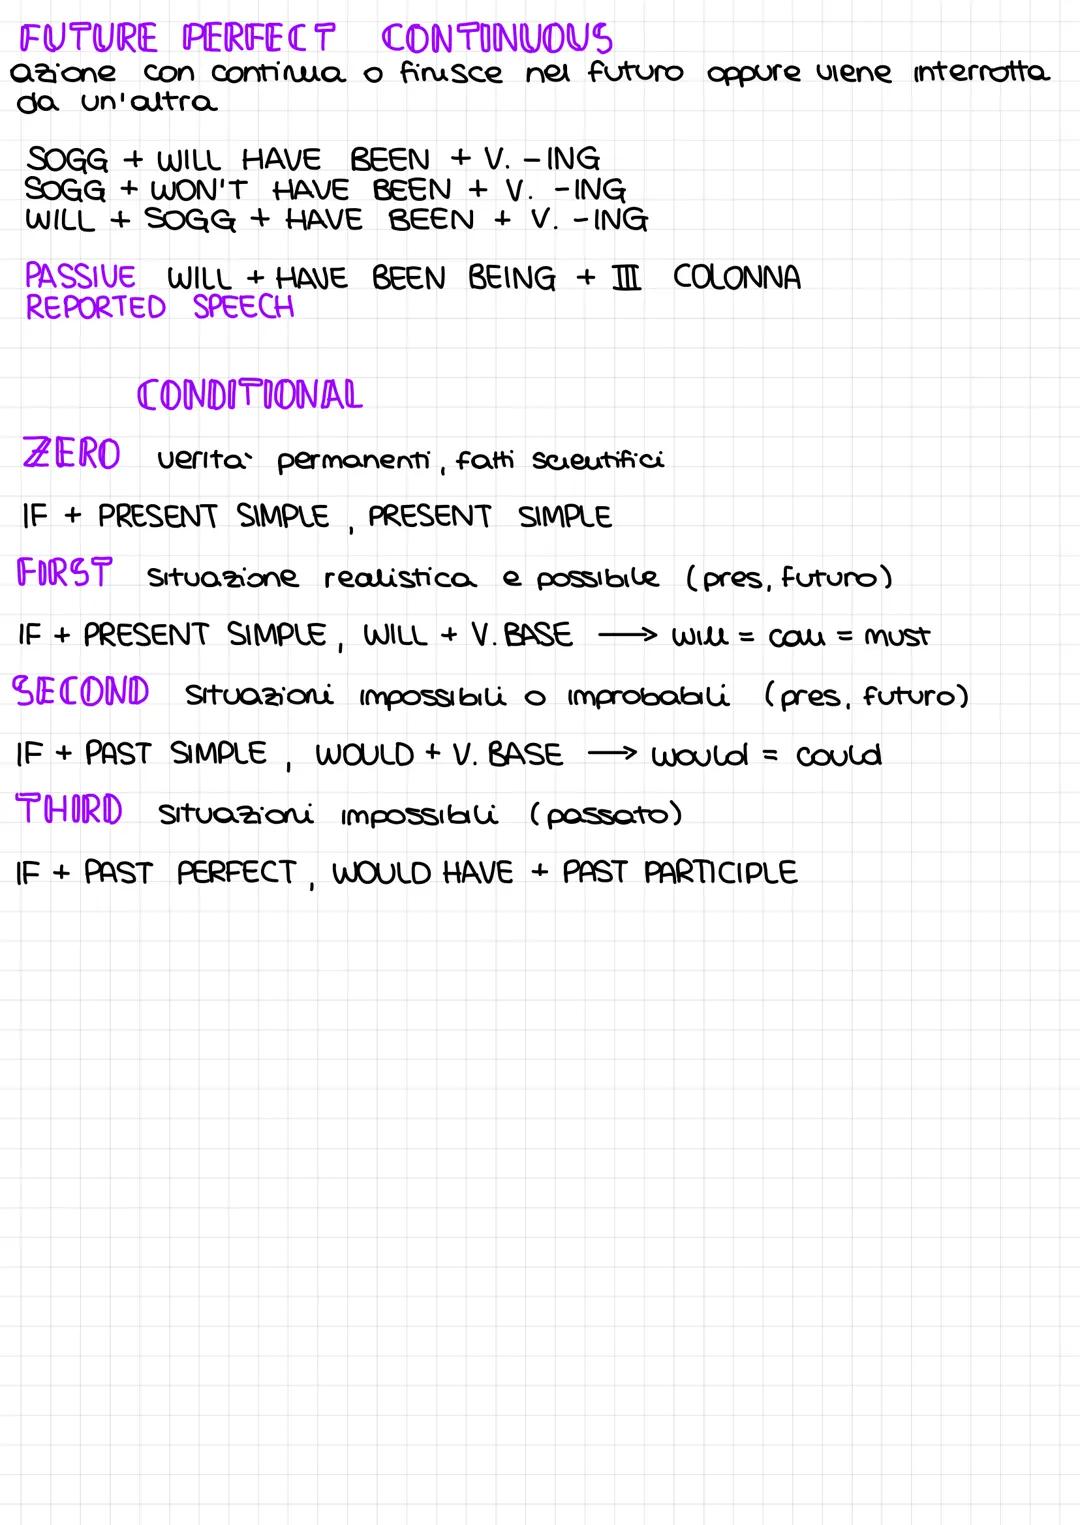 FUTURE PERFECT CONTINUOUS
azione con continua o finisce nel futuro oppure viene interrotta
da un'altra
SOGG + WILL HAVE BEEN + V. -ING
SOGG + WON'T HAVE BEEN + V. -ING
WILL + SOGG + HAVE BEEN + V. -ING
PASSIVE WILL + HAVE BEEN BEING + III COLONNA
REPORTED SPEECH
CONDITIONAL
ZERO verita` permanenti, fatti scientifici
IF + PRESENT SIMPLE, PRESENT SIMPLE
FIRST situazione realistica e possibile (pres, futuro)
IF + PRESENT SIMPLE, WILL + V. BASE → will = can = must
SECOND situazioni impossibili o improbabili (pres, futuro)
IF + PAST SIMPLE, WOULD + V. BASE → would = could
THIRD situazioni impossibili (passato)
IF + PAST PERFECT, WOULD HAVE + PAST PARTICIPLE